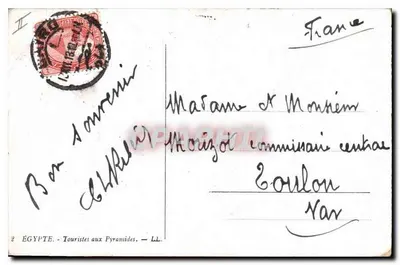 II
France
Bon souvenir
Madame et Monsieur
Morizot commissaire central
Toulon
Var
2 ÉGYPTE. - Touristes aux Pyramides. - LL.